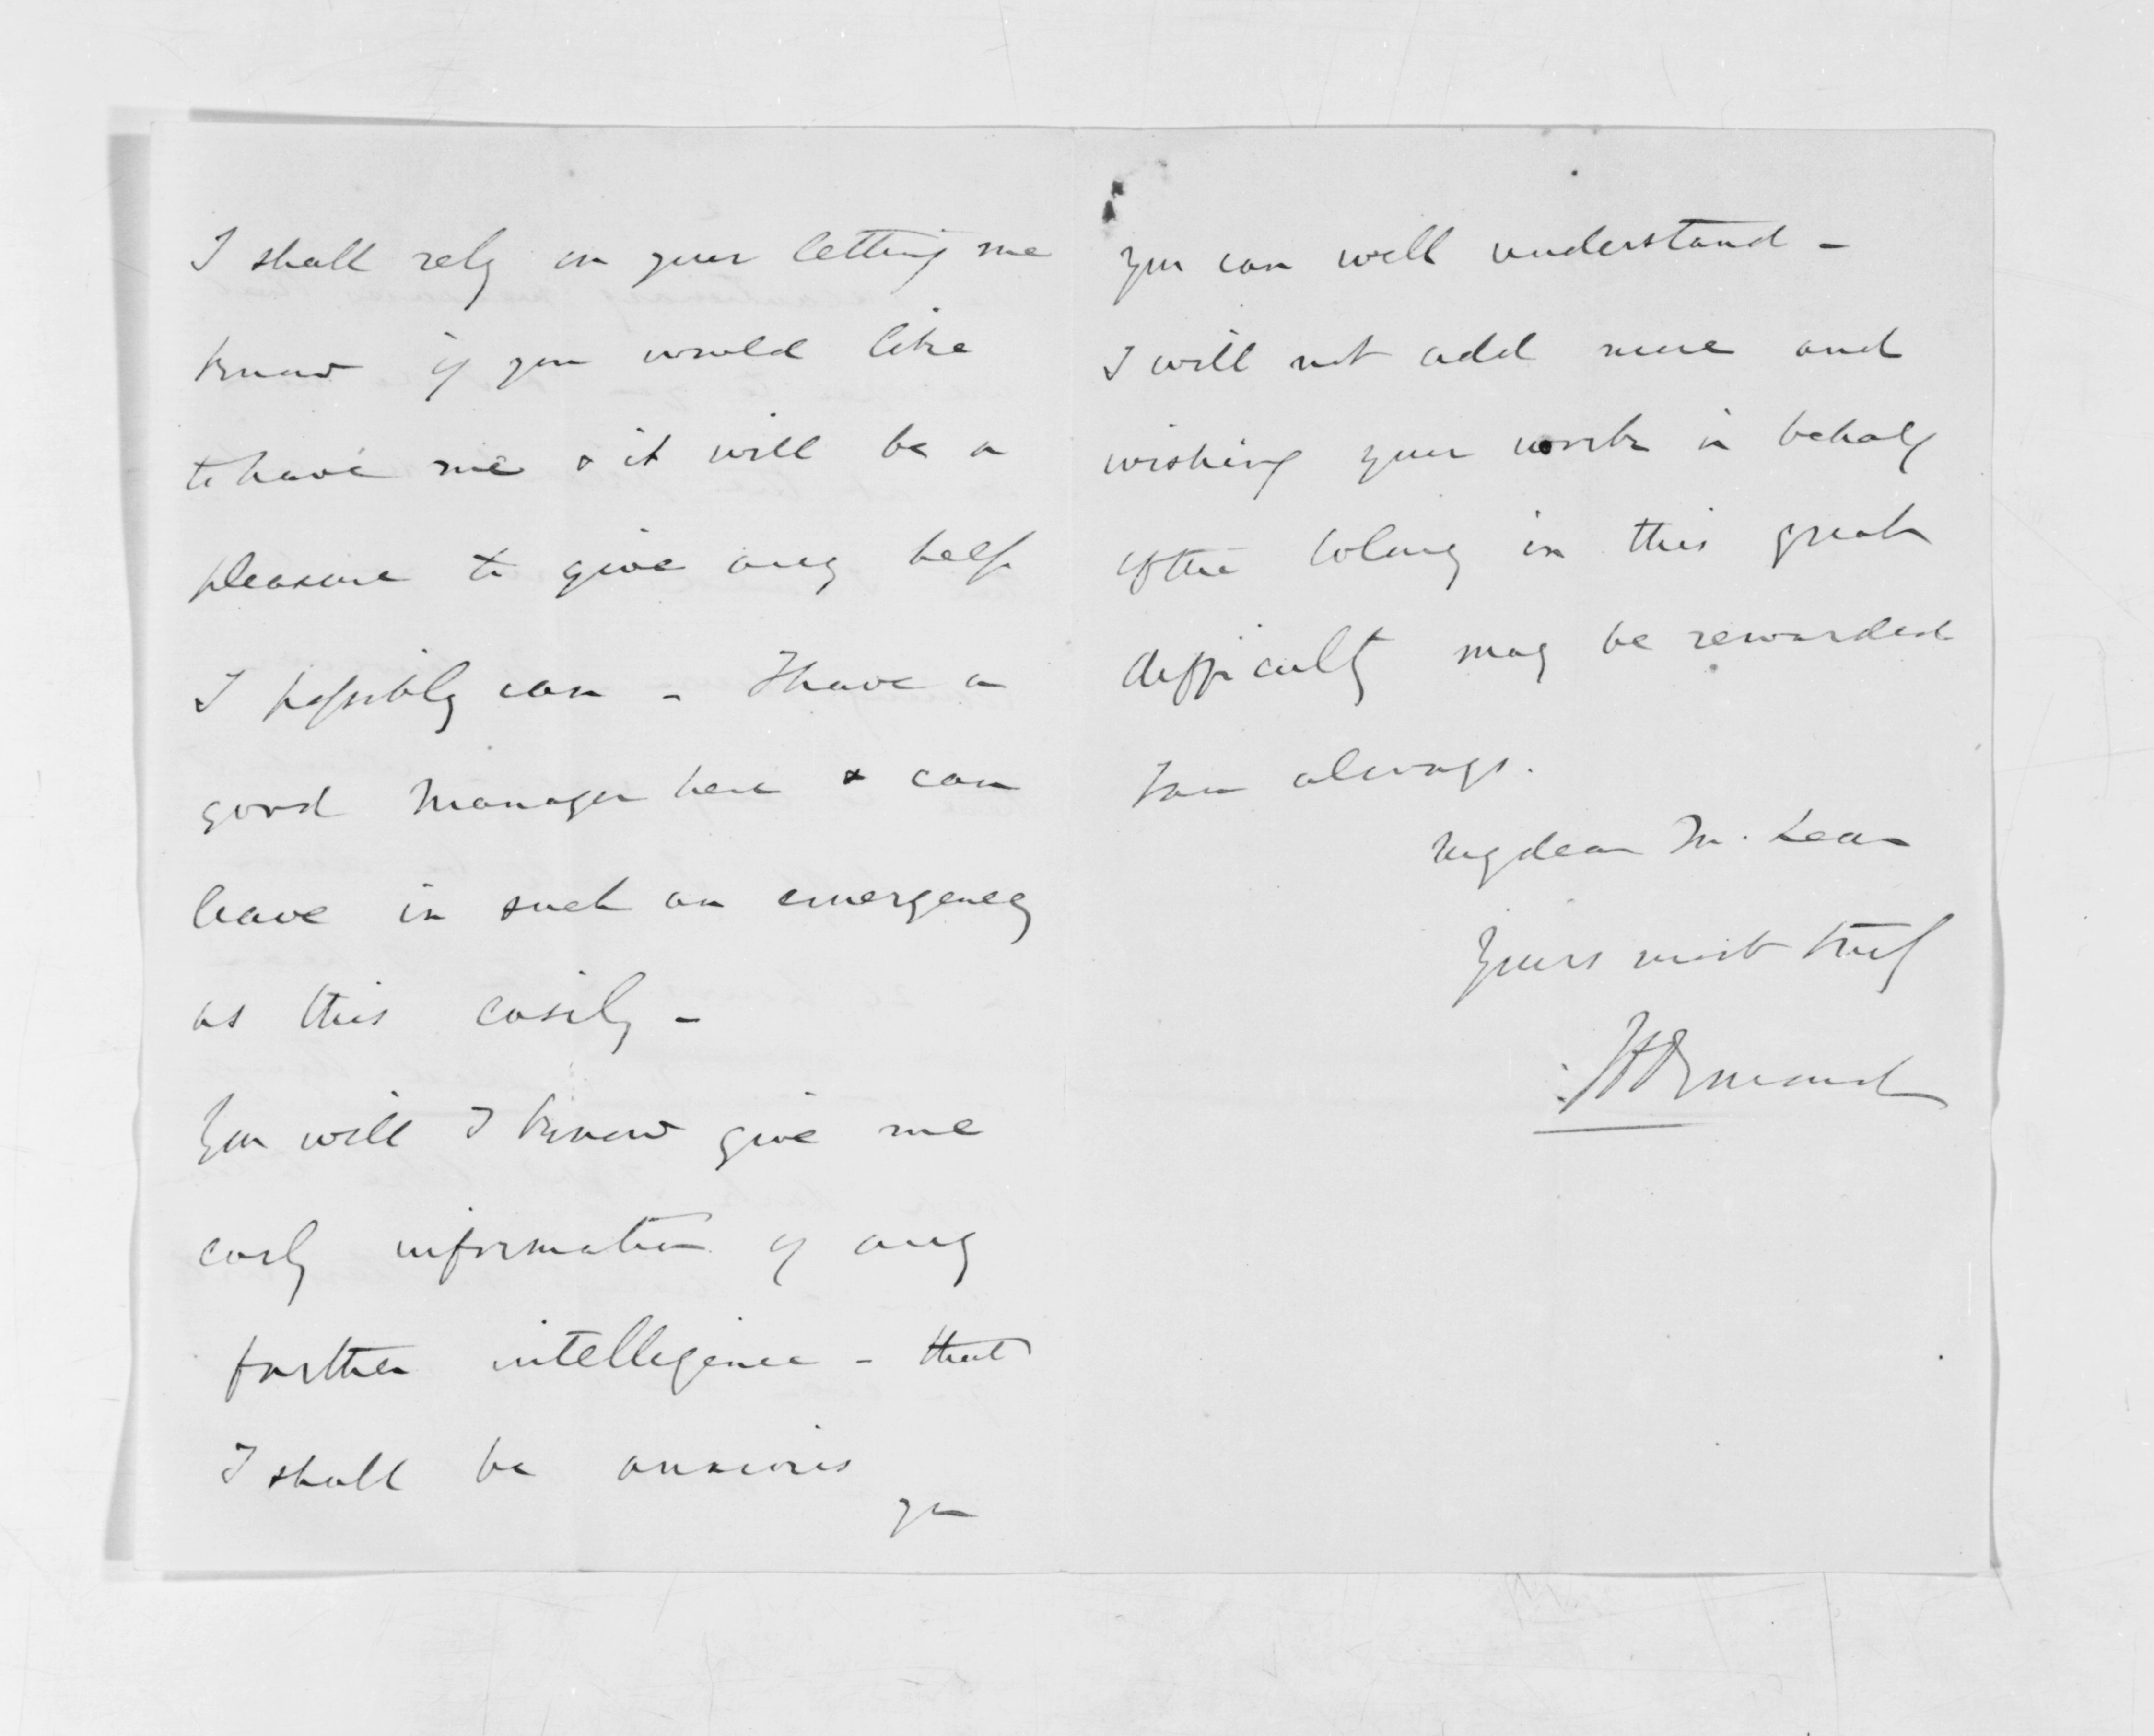 I shall rely on your letting me
know if you would like
to have me & it will be a
pleasure to give any help
I possibly can - I have a
good Manager here & can
leave in such an emergency
as this easily -
You will I know give me
early information of any
further intelligence - that
I shall be anxious
you
you can well understand -
I will not add more and
wishing your work in behalf
of the Colony in this great
difficulty may be rewarded
I am always.
My dear McLean
Yours most truly
J H Ormond